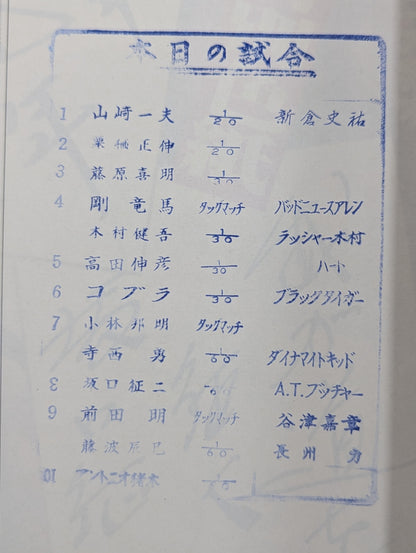 本日の試合
1 山崎一夫 1/20 新倉史祐
2 栗栖正伸 1/20
3 藤原喜明 1/30
4 剛竜馬 タッグマッチ バッドニュースアレン
木村健吾 1/30 ラッシャー木村
5 高田伸彦 1/30 ハート
6 コブラ 1/30 ブラックタイガー
7 小林邦明 タッグマッチ
寺西勇 1/60 ダイナマイトキッド
8 坂口征二 60 A.T.ブッチャー
9 前田明 タッグマッチ 谷津嘉章
藤波辰巳 1/60 長州力
10 アントニオ猪木